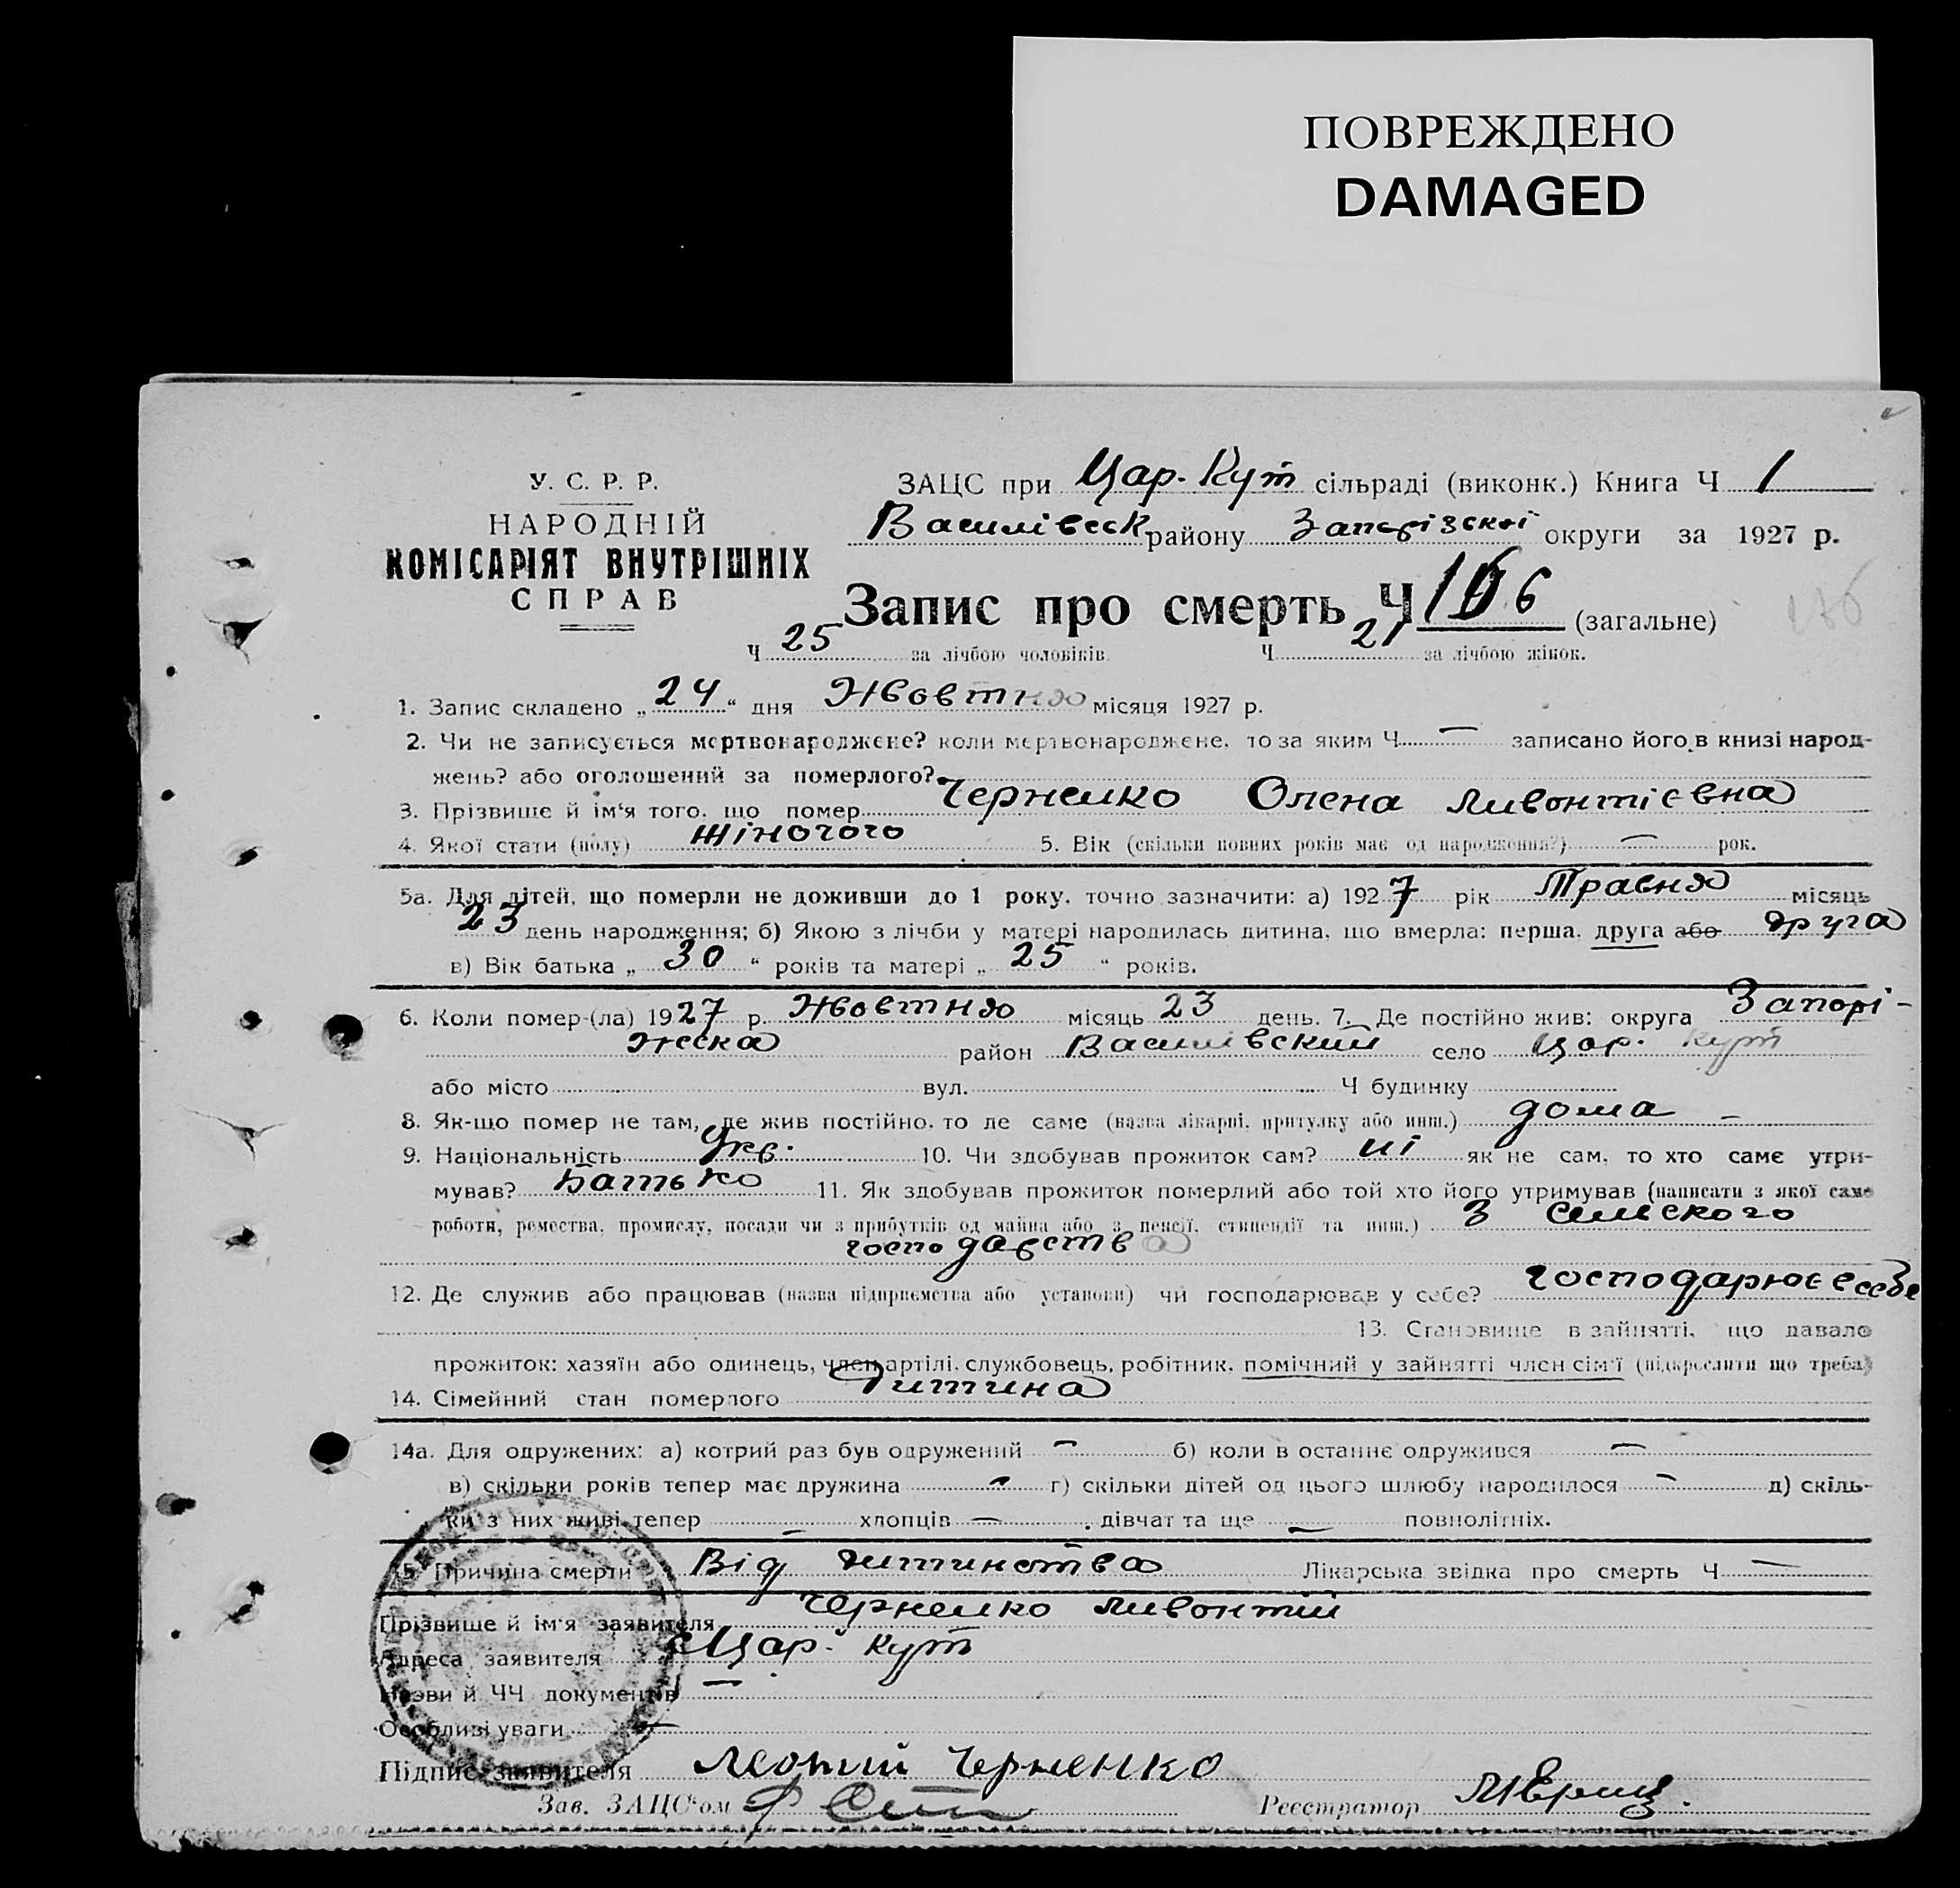 ПОВРЕЖДЕНО
DAMAGED
У. С. Р. Р.
НАРОДНІЙ
КОМІСАРІЯТ ВНУТРІШНІХ
СПРАВ
ЗАЦС при Цар. Кут сільраді (виконк.) Книга Ч 1
Василівськ району Запорізскої округи за 1927 р.
Запис про смерть Ч (загальне)
Ч 25 за лічбою чоловіків Ч 21 за лічбою жінок.
1. Запис складено „ 24 “ дня Жовтня місяця 1927 р.
2. Чи не записується мертвонароджене? коли мертвонароджене, то за яким Ч — записано його в книзі народ-
жень? або оголошений за померлого?
3. Прізвище й ім'я того, що помер Черненко Олена Ливонтієвна
4. Якої стати (полу) жіночого 5. Вік (скільки повних років має од народження?) — рок.
5а. Для дітей, що померли не доживши до 1 року, точно зазначити: а) 1927 рік Травня місяць
23 день народження; б) Якою з лічби у матері народилась дитина, що вмерла: перша, друга або друга
в) Вік батька „ 30 “ років та матері „ 25 “ років.
6. Коли помер-(ла) 1927 р. Жовтня місяць 23 день. 7. Де постійно жив: округа Запорі-
жська район Василівский село Цар. Кут
або місто вул. Ч будинку
8. Як-що помер не там, де жив постійно, то де саме (назва лікарні, притулку або инш.) дома —
9. Національність Укр. 10. Чи здобував прожиток сам? ні як не сам, то хто саме утри-
мував? Батько 11. Як здобував прожиток померлий або той хто його утримував (написати з якої саме
роботи, ремества, промислу, посади чи з прибутків од майна або з пенсії, стипендії та инш.) З сельского
господарства
12. Де служив або працював (назва підприємства або установи) чи господарював у себе? господарює в себе
13. Становище в зайнятті, що давало
прожиток: хазяїн або одинець, член артілі, службовець, робітник, помічний у зайнятті член сім'ї (підкреслити що треба)
14. Сімейний стан померлого Дитина
14а. Для одружених: а) котрий раз був одружений — б) коли в останнє одружився —
в) скільки років тепер має дружина — г) скільки дітей од цього шлюбу народилося — д) скіль-
ки з них живі тепер — хлопців — , дівчат та ще — повнолітніх.
15. Причина смерти Від дитинства Лікарська звідка про смерть Ч —
Прізвище й ім'я заявителя Черненко Ливонтій
Адреса заявителя Цар. Кут
Назви й ЧЧ документів —
Особливі уваги —
Підпис заявителя Леонтий Черненко
Зав. ЗАЦС'ом Реєстратор